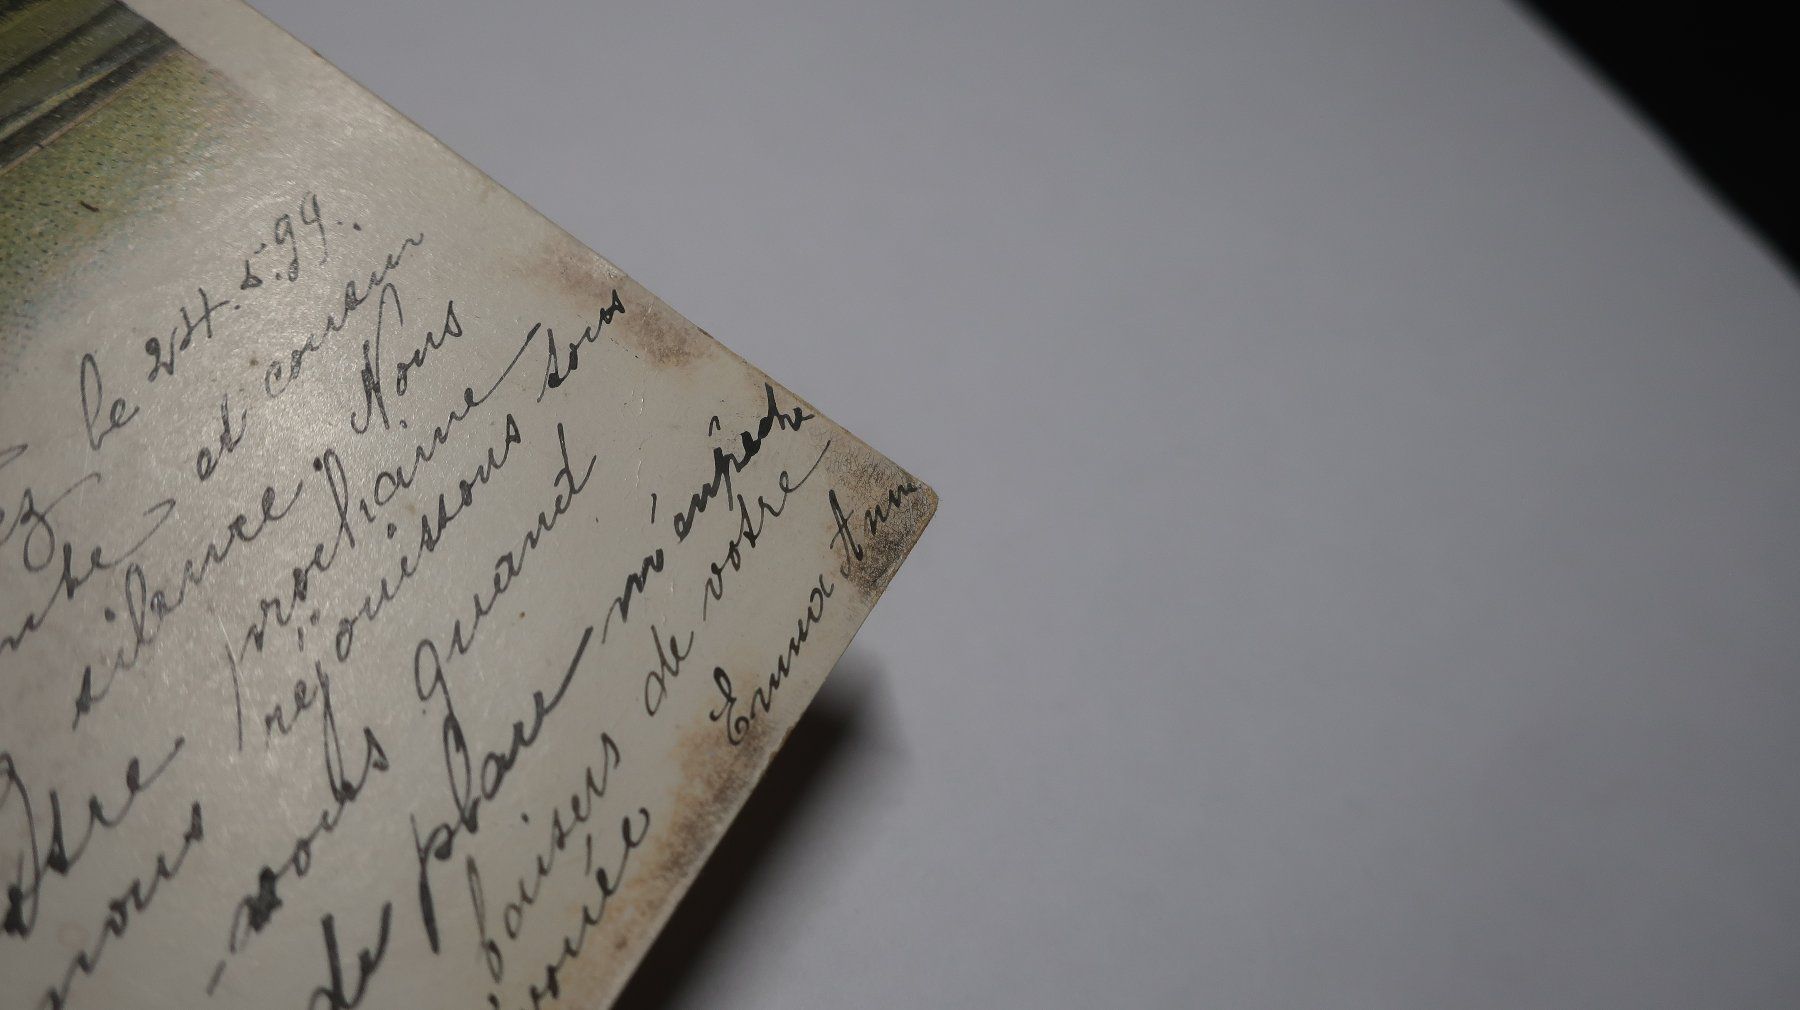 ez le 24.5.99.
nte et cousin
silence Nous
otre prochaine
nous réjouissons tous
-vous quand
de place m'empêche
baisers de votre
vouée Emma Anne